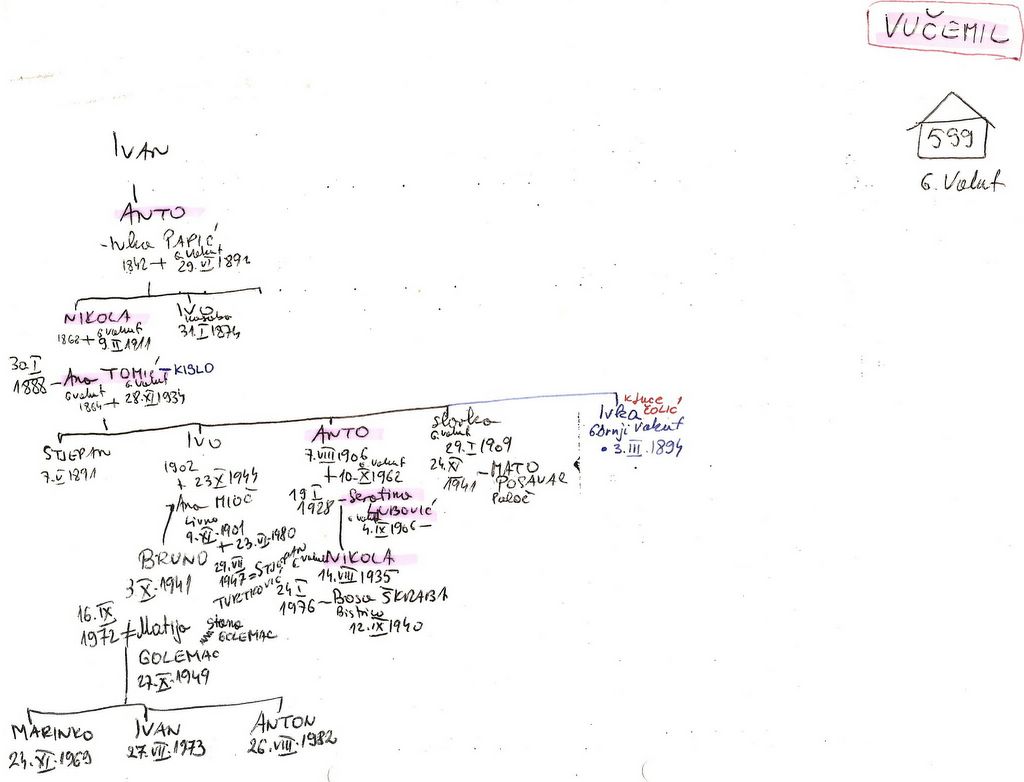 VUČEMIL
599
G. Vakuf
IVAN
ANTO
- Ivka PAPIĆ
G. Vakuf
1842 + 29.VI 1892
NIKOLA
G. Vakuf
1862 + 9.II 1911
IVO
31.I 1874
30.I
1888 - Ana TOMIĆ - KISLO
G. Vakuf G. Vakuf
1864 + 28.XI 1934
STJEPAN
7.V 1891
IVO
1902
+ 23 X 1944
Ana MIOČ
Livno
9.XI.1901
+ 23.VI.1980
29.VII
1947 = STJEPAN
TURTKOVIĆ
BRUNO
3 X.1941
16.IX
1972 Matija
GOLEMAC
27.X.1949
Stana
GOLEMAC
MARINKO
24.XI.1969
IVAN
27.VII.1973
ANTON
26.VIII.1982
ANTO
7.VIII 1906
G. Vakuf
+ 10.X 1962
19 I
1928 - Serafina
LJUBOVIĆ
G. Vakuf
4.IX 1906 -
NIKOLA
G. Vakuf
14.VIII 1935
24 I
1976 - Bosa ŠKRABA
Bistrica
12.IX 1940
Slavka
G. Vakuf
29.I 1909
24.XI
1941 - MATO
POSAVAC
Paloč
Ivka
ČOLIĆ
Gornji Vakuf
• 3.III.1894